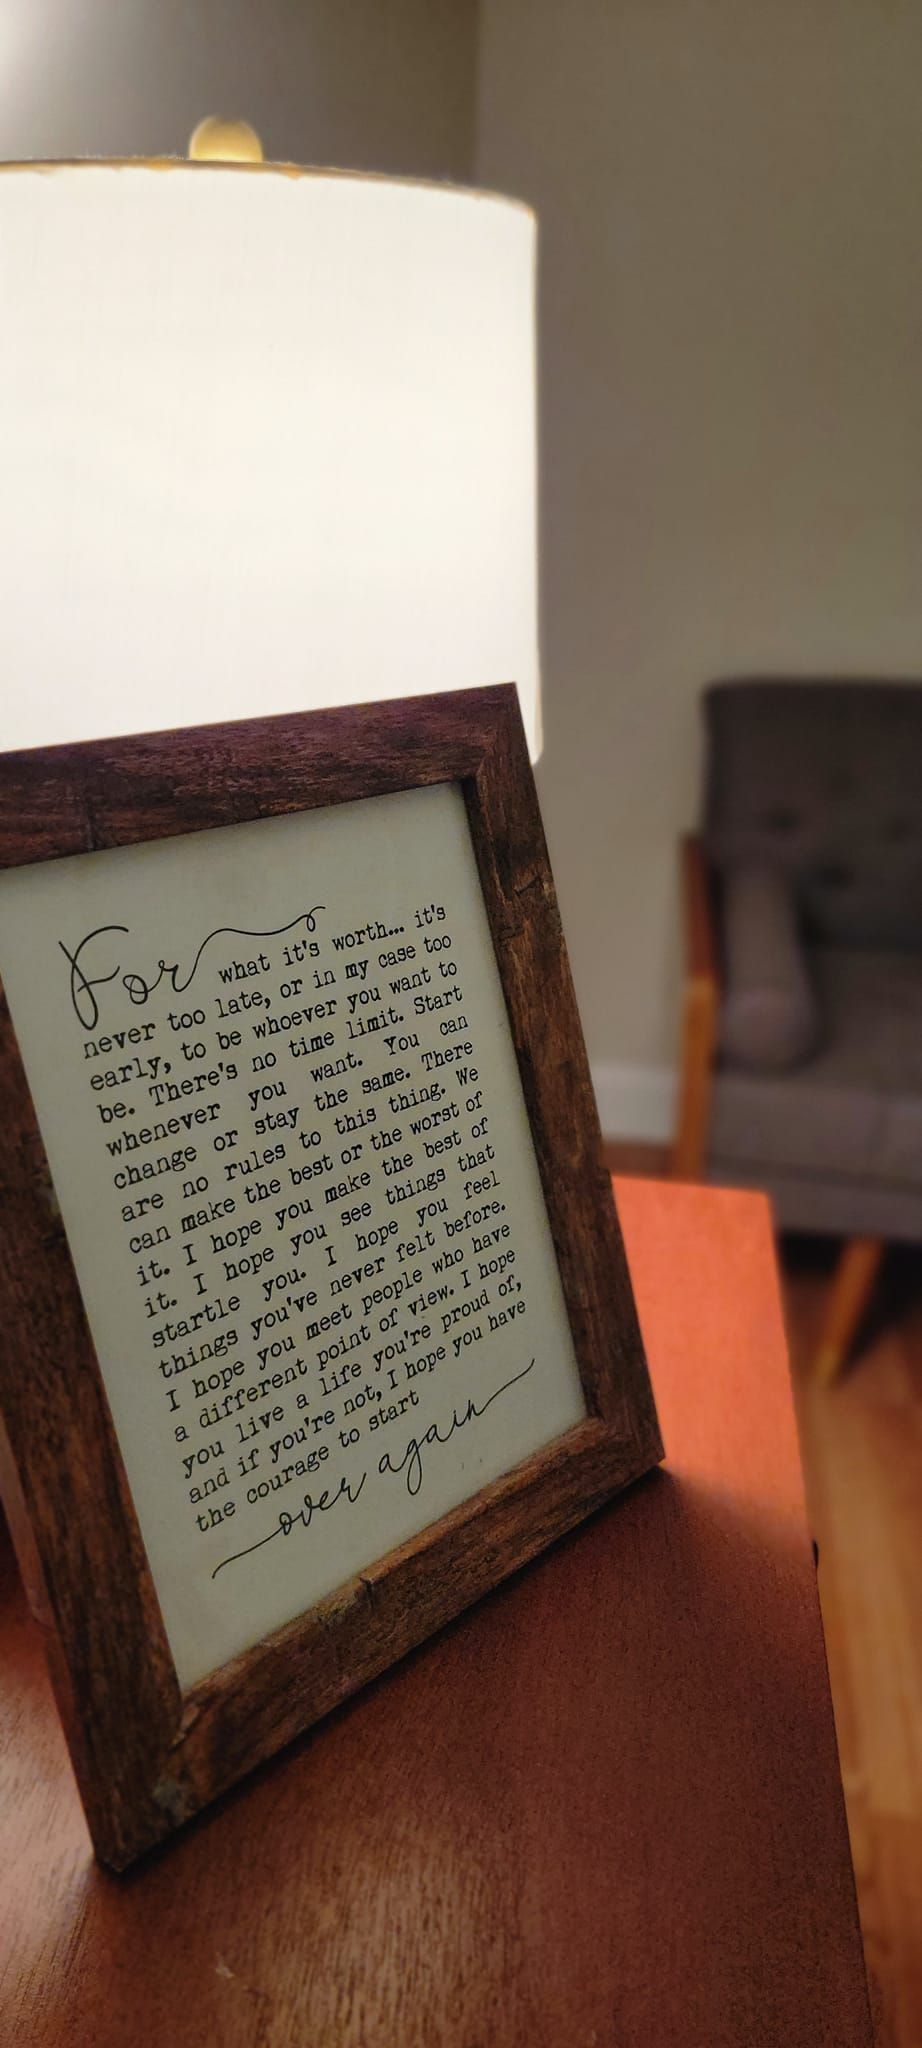 For what it's worth... it's
never too late, or in my case too
early, to be whoever you want to
be. There's no time limit. Start
whenever you want. You can
change or stay the same. There
are no rules to this thing. We
can make the best or the worst of
it. I hope you make the best of
it. I hope you see things that
startle you. I hope you feel
things you've never felt before.
I hope you meet people who have
a different point of view. I hope
you live a life you're proud of,
and if you're not, I hope you have
the courage to start
over again